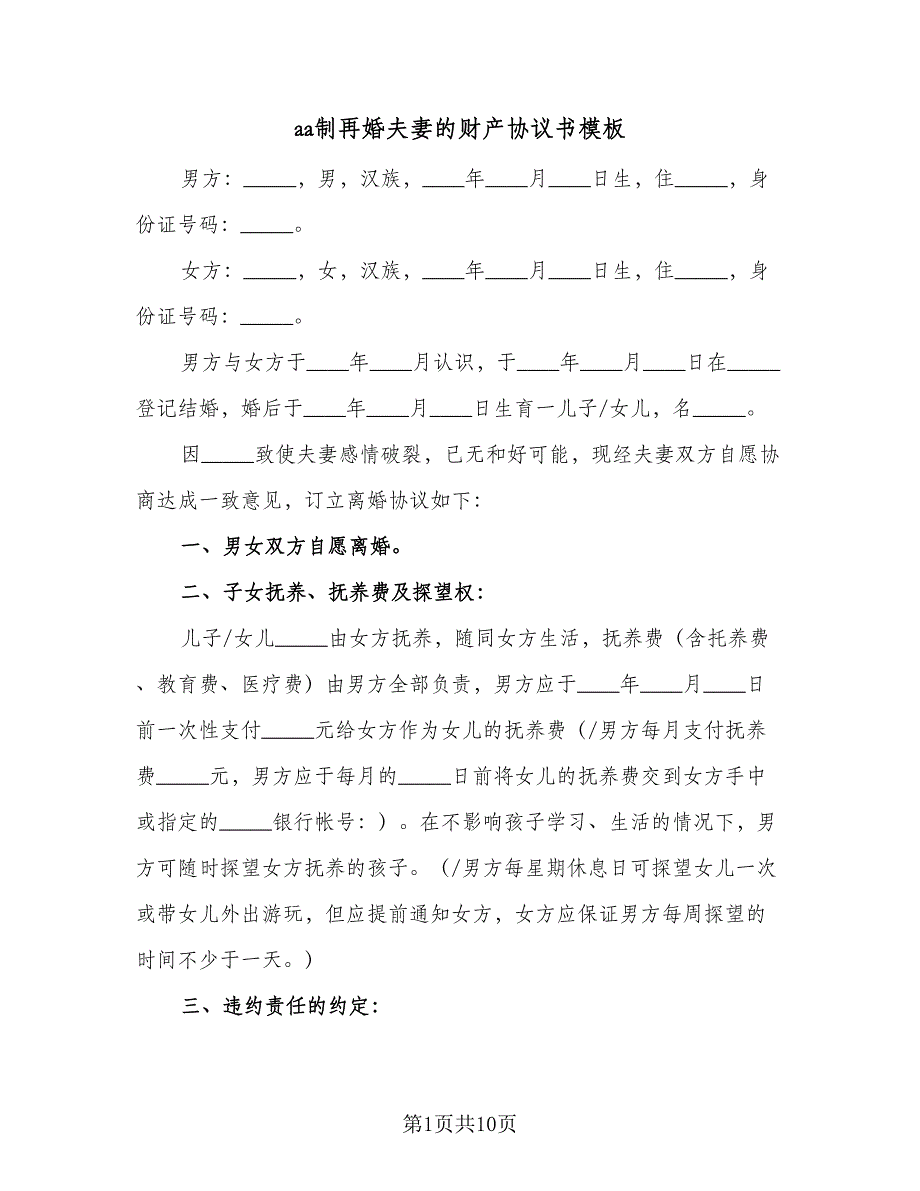 aa制再婚夫妻的财产协议书模板
男方：_____，男，汉族，____年____月____日生，住_____，身
份证号码：_____。
女方：_____，女，汉族，____年____月____日生，住_____，身
份证号码：_____。
男方与女方于____年____月认识，于____年____月____日在_____
登记结婚，婚后于____年____月____日生育一儿子/女儿，名_____。
因_____致使夫妻感情破裂，已无和好可能，现经夫妻双方自愿协
商达成一致意见，订立离婚协议如下：
一、男女双方自愿离婚。
二、子女抚养、抚养费及探望权：
儿子/女儿_____由女方抚养，随同女方生活，抚养费（含托养费
、教育费、医疗费）由男方全部负责，男方应于____年____月____日
前一次性支付_____元给女方作为女儿的抚养费（/男方每月支付抚养
费_____元，男方应于每月的_____日前将女儿的抚养费交到女方手中
或指定的_____银行帐号：）。在不影响孩子学习、生活的情况下，男
方可随时探望女方抚养的孩子。（/男方每星期休息日可探望女儿一次
或带女儿外出游玩，但应提前通知女方，女方应保证男方每周探望的
时间不少于一天。）
三、违约责任的约定：
第1页共10页